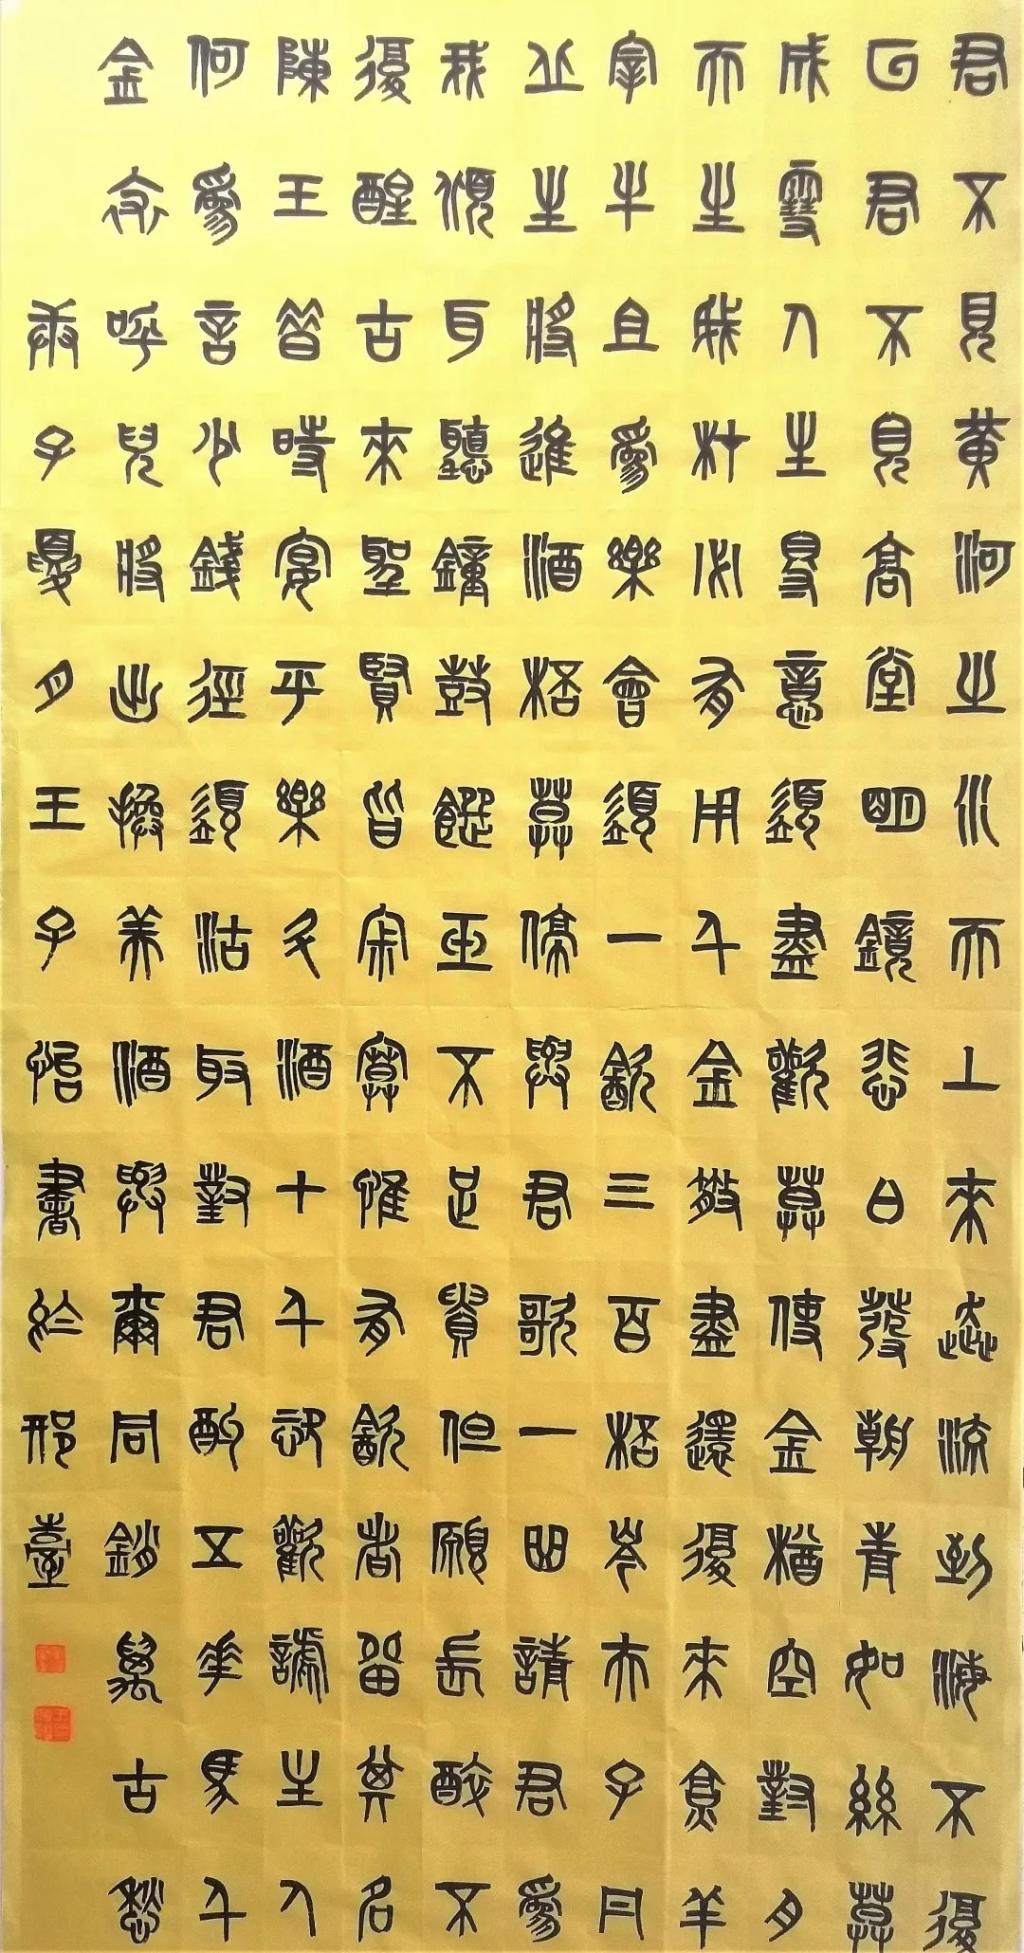 君不見黃河之水天上來奔流到海不復
回君不見高堂明鏡悲白發朝青如絲莫
成雪人生得意須盡歡莫使金樽空對月
天生我材必有用千金散盡還復來烹羊
宰牛且為樂會須一飲三百杯岑夫子丹
丘生將進酒杯莫停與君歌一曲請君為
我傾耳聽鐘鼓饌玉不足貴但願長醉不
復醒古來聖賢皆寂寞惟有飲者留其名
陳王昔時宴平樂斗酒十千恣歡謔主人
何為言少錢徑須沽取對君酌五花馬千
金裘呼兒將出換美酒與爾同銷萬古愁
庚子夏月王子怡書於邢臺